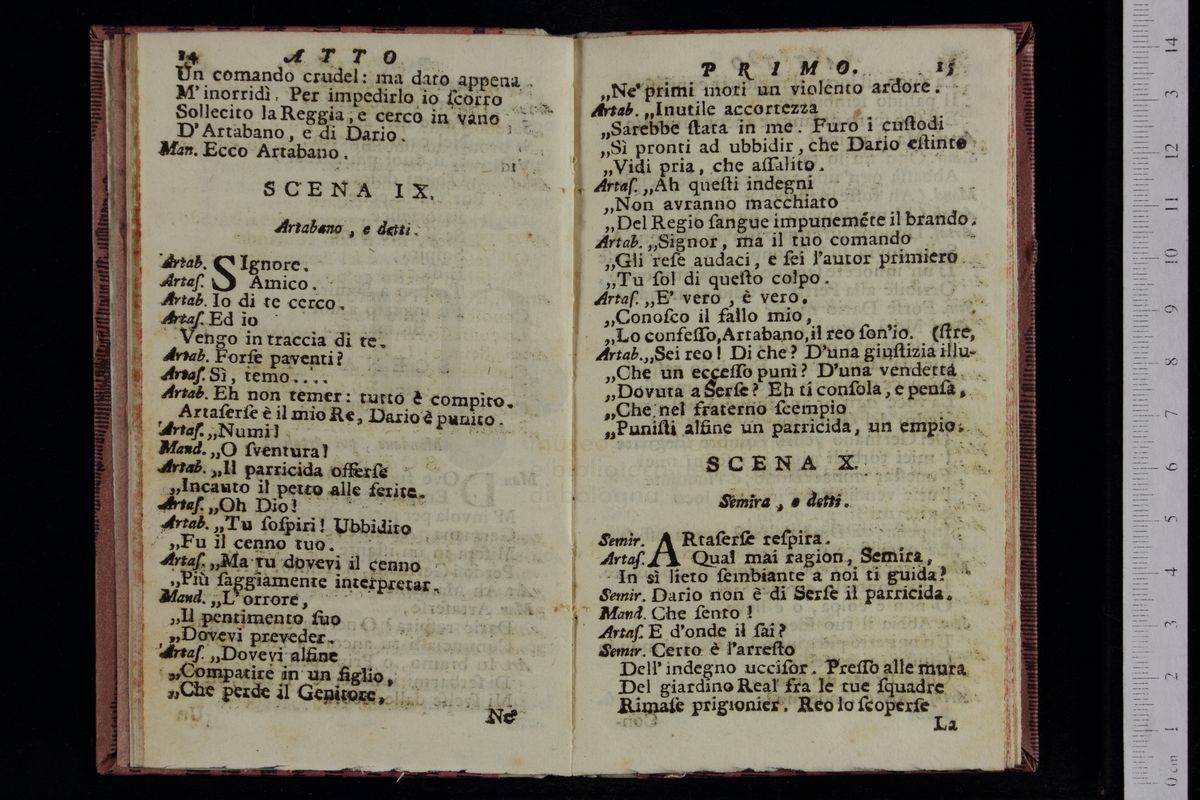 14 ATTO
Un comando crudel: ma dato appena
M'inorridì. Per impedirlo io ſcorro
Sollecito la Reggia, e cerco in vano
D'Artabano, e di Dario.
Man. Ecco Artabano.
SCENA IX.
Artabano, e detti.
Artab. SIgnore.
Artaſ. Amico.
Artab. Io di te cerco.
Artaſ. Ed io
Vengo in traccia di te.
Artab. Forſe paventi?
Artaſ. Sì, temo....
Artab. Eh non temer: tutto è compito.
Artaſerſe è il mio Re, Dario è punito.
Artaſ. „Numi!
Mand. „O ſventura!
Artab. „Il parricida offerſe
„Incauto il petto alle ferite.
Artaſ. „Oh Dio!
Artab. „Tu ſoſpiri! Ubbidito
„Fu il cenno tuo.
Artaſ. „Ma tu dovevi il cenno
„Più ſaggiamente interpretar.
Mand. „L'orrore,
„Il pentimento ſuo
„Dovevi preveder.
Artaſ. „Dovevi alfine
„Compatire in un figlio,
„Che perde il Genitore,
Ne'
PRIMO. 15
„Ne' primi moti un violento ardore.
Artab. „Inutile accortezza
„Sarebbe ſtata in me. Furo i cuſtodi
„Sì pronti ad ubbidir, che Dario eſtinto
„Vidi pria, che aſſalito.
Artaſ. „Ah queſti indegni
„Non avranno macchiato
„Del Regio ſangue impuneméte il brando.
Artab. „Signor, ma il tuo comando
„Gli reſe audaci, e ſei l'autor primiero
„Tu ſol di queſto colpo.
Artaſ. „E' vero, è vero.
„Conoſco il fallo mio,
„Lo confeſſo, Artabano, il reo ſon'io. (ſtre,
Artab. „Sei reo! Di che? D'una giuſtizia illu-
„Che un ecceſſo punì? D'una vendetta
„Dovuta a Serſe? Eh ti conſola, e penſa,
„Che nel fraterno ſcempio
„Puniſti alfine un parricida, un empio.
SCENA X.
Semira, e detti.
Semir. ARtaſerſe reſpira.
Artaſ. Qual mai ragion, Semira,
In sì lieto ſembiante a noi ti guida?
Semir. Dario non è di Serſe il parricida.
Mand. Che ſento!
Artaſ. E d'onde il ſai?
Semir. Certo è l'arreſto
Dell'indegno ucciſor. Preſſo alle mura
Del giardino Real fra le tue ſquadre
Rimaſe prigionier. Reo lo ſcoperſe
La